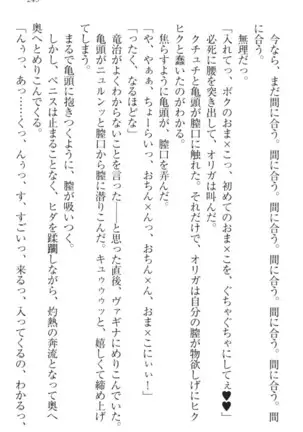 今なら、まだ間に合う。間に合う。間に合う。間に合う。間に合う。間
に合う。
無理だっ。
「入れてっ、ボクのおま×こっ、初めてのおま×こを、ぐちゃぐちゃにしてぇ♥♥」
必死に腰を突き出して、オリガは叫んだ。
クチュチと亀頭が膣口に触れた。それだけで、オリガは自分の膣が物欲しげにヒク
ヒクと蠢いたのがわかる。
焦らすように亀頭が、膣口を弄んだ。
「や、やぁぁ、ちょーらいっ、おちん×んっ、おちん×ん、おま×こにぃぃ！」
「ったく、なるほどな」
竜治がよくわからないことを言った――と思った直後、ヴァギナにめりこんでいた。
亀頭がニュルンッと膣口から膣に潜りこんだ。キュゥゥゥッと、嬉しくて締め上げ
てしまう。
まるで亀頭に抱きつくように、膣が吸いつく。
しかし、ペニスは止まることなく、ヒダを蹂躙しながら、灼熱の奔流となって奥へ
奥へとめりこんでくる。
「んぅっ、あっ……くっ、んぅっ、す、すごいっ、来るっ、入ってくるの、わかるっ、